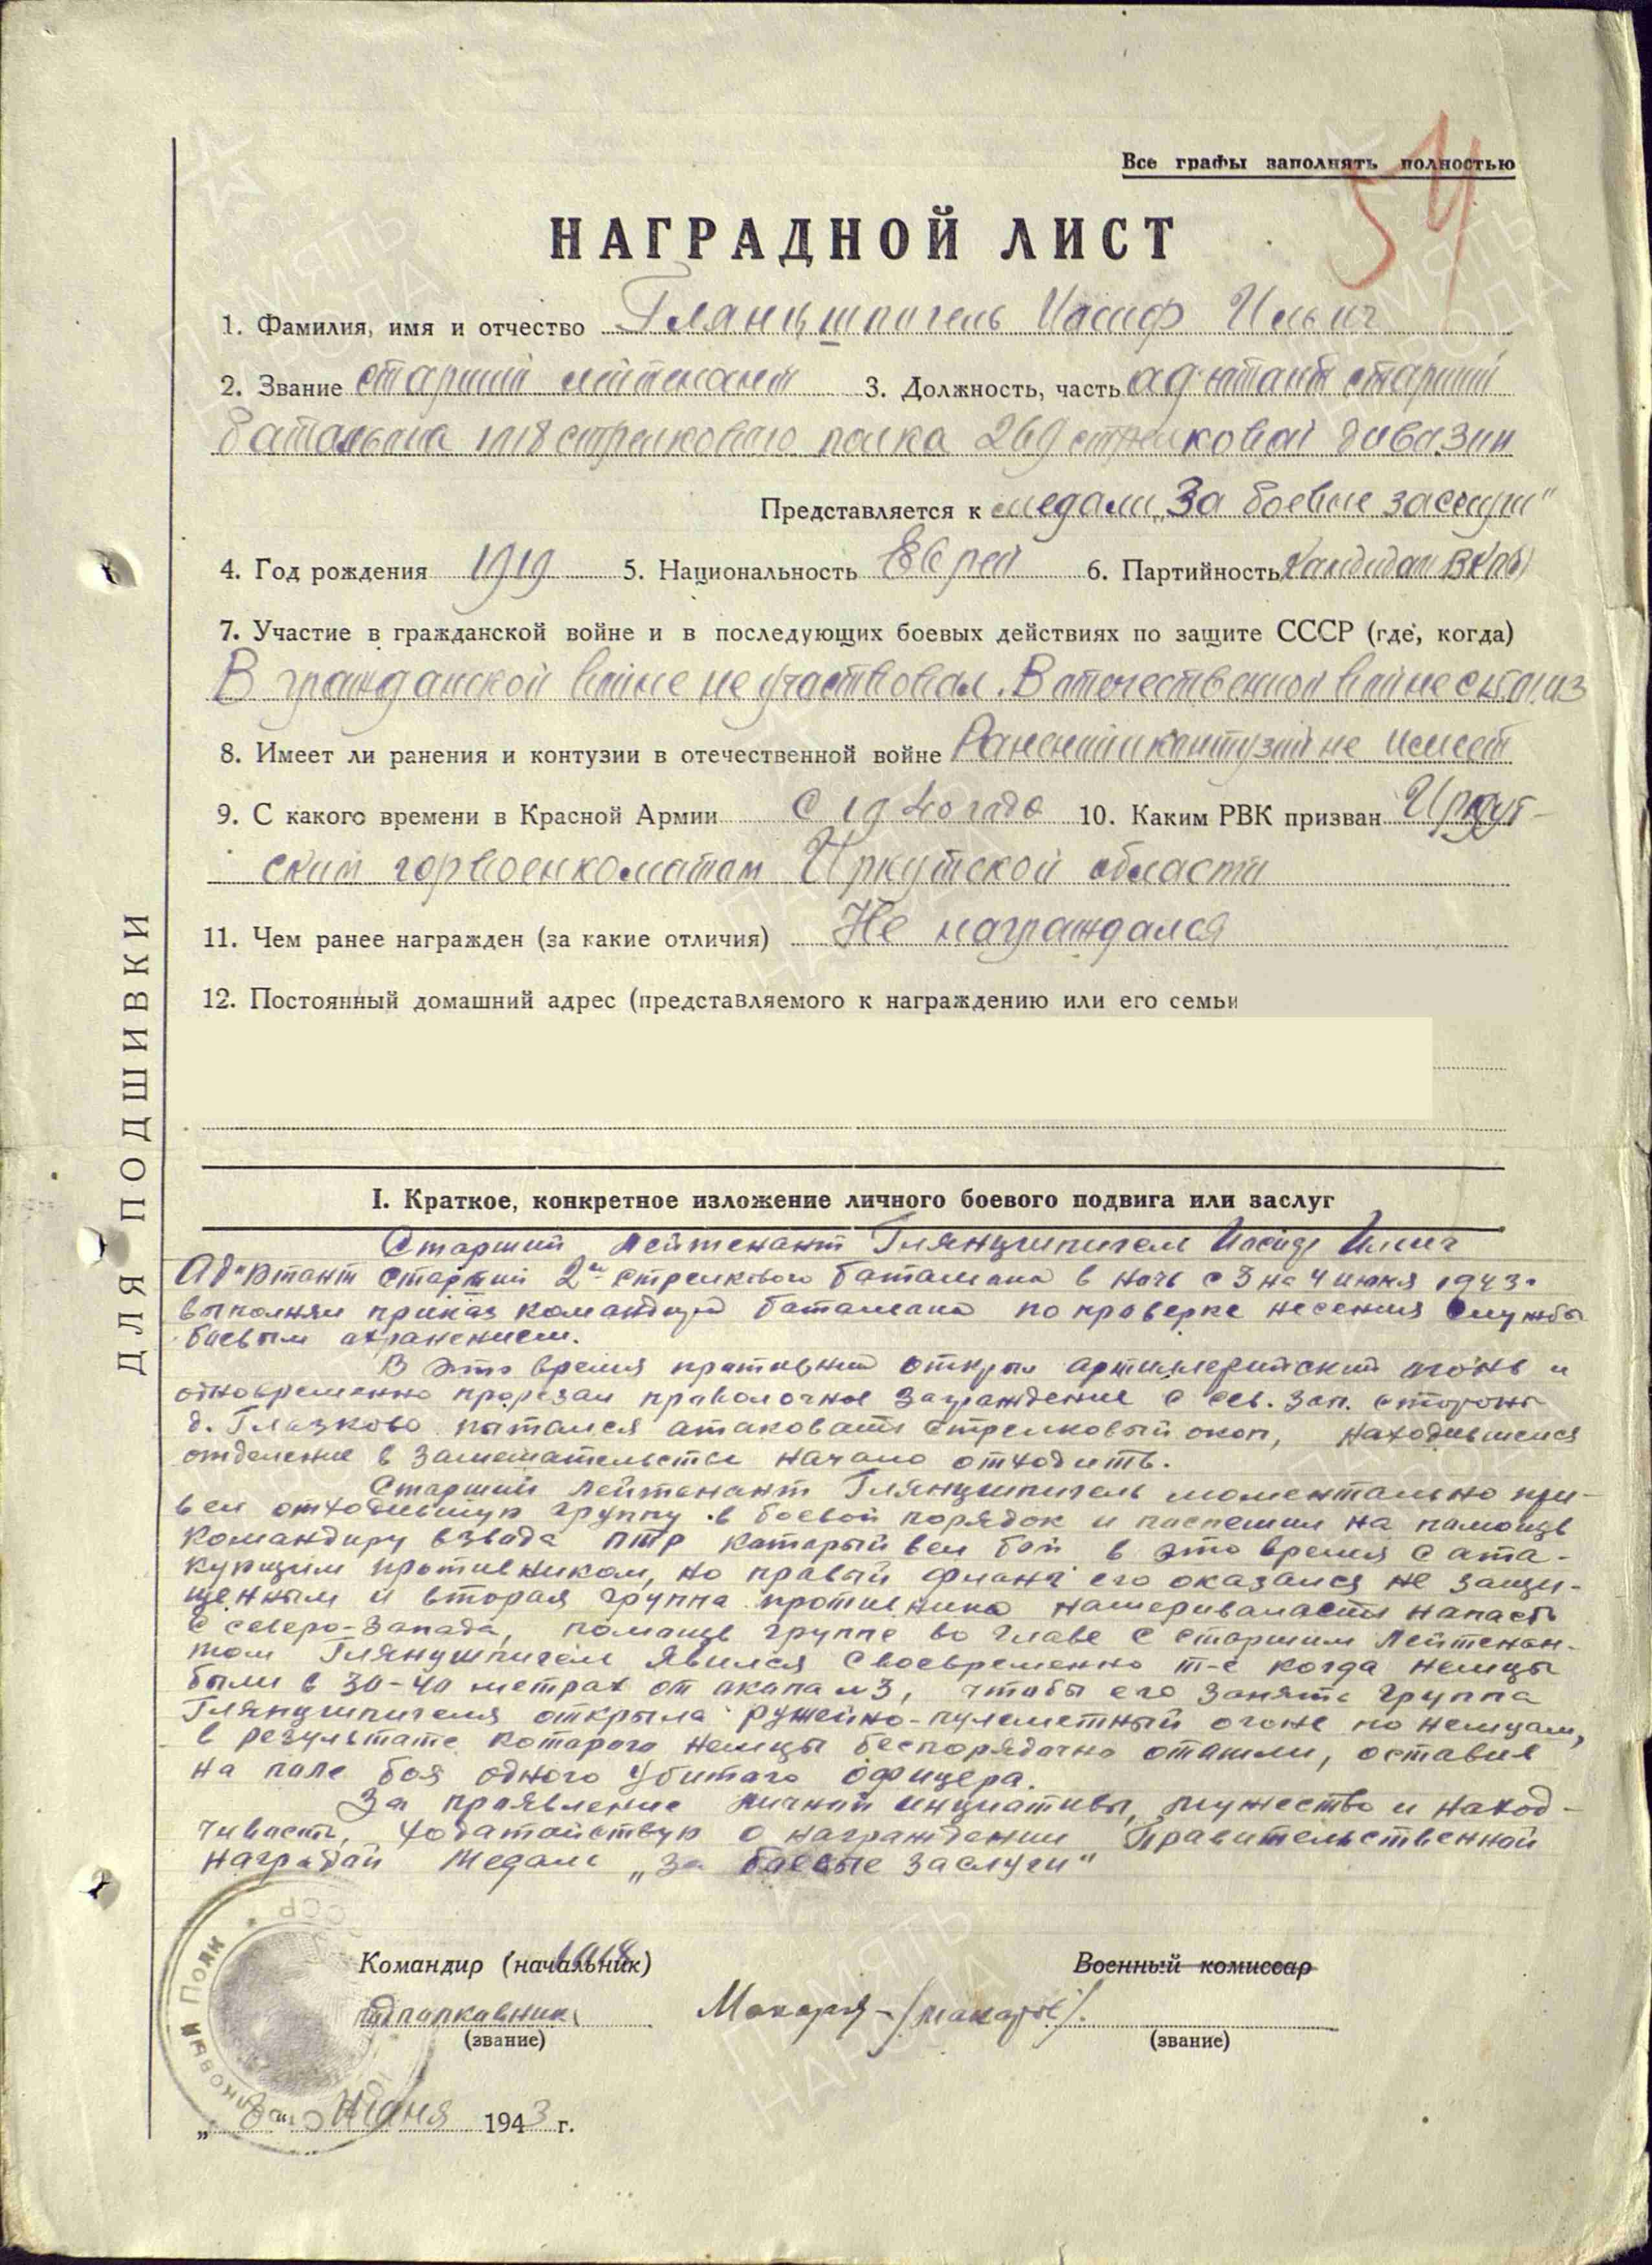 Все графы заполнять полностью
54
НАГРАДНОЙ ЛИСТ
1. Фамилия, имя и отчество Глянцшпигель Иосиф Ильич
2. Звание старший лейтенант 3. Должность, часть ад'ютант старший
батальона 1018 стрелкового полка 269 стрелковой дивизии
Представляется к медали „За боевые заслуги"
4. Год рождения 1919 5. Национальность Еврей 6. Партийность Кандидат ВКП(б)
7. Участие в гражданской войне и в последующих боевых действиях по защите СССР (где, когда)
В гражданской войне не участвовал. В отечественной войне с
8. Имеет ли ранения и контузии в отечественной войне Ранений и контузий не имеет
9. С какого времени в Красной Армии с 1940 года 10. Каким РВК призван Иркут-
ским горвоенкоматом Иркутской области
11. Чем ранее награжден (за какие отличия) Не награждался
12. Постоянный домашний адрес (представляемого к награждению или его семьи
ДЛЯ ПОДШИВКИ
I. Краткое, конкретное изложение личного боевого подвига или заслуг
Старший лейтенант Глянцшпигель Иосиф Ильич
Ад'ютант старший 2го стрелкового батальона в ночь с 3 на 4 июня 1943г.
выполнял приказ командира батальона по проверке несения службы
боевым охранением.
В это время противник открыл артиллерийский огонь и
одновременно прорезал проволочное заграждение с сев. зап. стороны
д. Глазково пытался атаковать стрелковый окоп, находившееся
отделение в замешательстве начало отходить.
Старший лейтенант Глянцшпигель моментально при-
вел отходившую группу в боевой порядок и поспешил на помощь
командиру взвода ПТР который вел бой в это время с ата-
кующим противником, но правый фланг его оказался не защи-
щенным и вторая группа противника намеривалась напасть
с северо-запада, помощь группе во главе с старшим лейтенан-
том Глянцшпигель явился своевременно т-е когда немцы
были в 30-40 метрах от окопа №3, чтобы его занять группа
Глянцшпигеля открыла ружейно-пулеметный огонь по немцам,
в результате которого немцы беспорядочно отошли, оставив
на поле боя одного убитого офицера.
За проявление личной инциативы, мужество и наход-
чивость, ходатайствую о награждении Правительственной
наградой Медаль „За боевые заслуги"
Командир (начальник) 1018
Военный комиссар
подполковник Макаров /Макаров/.
(звание) (звание)
„8" Июня 1943 г.